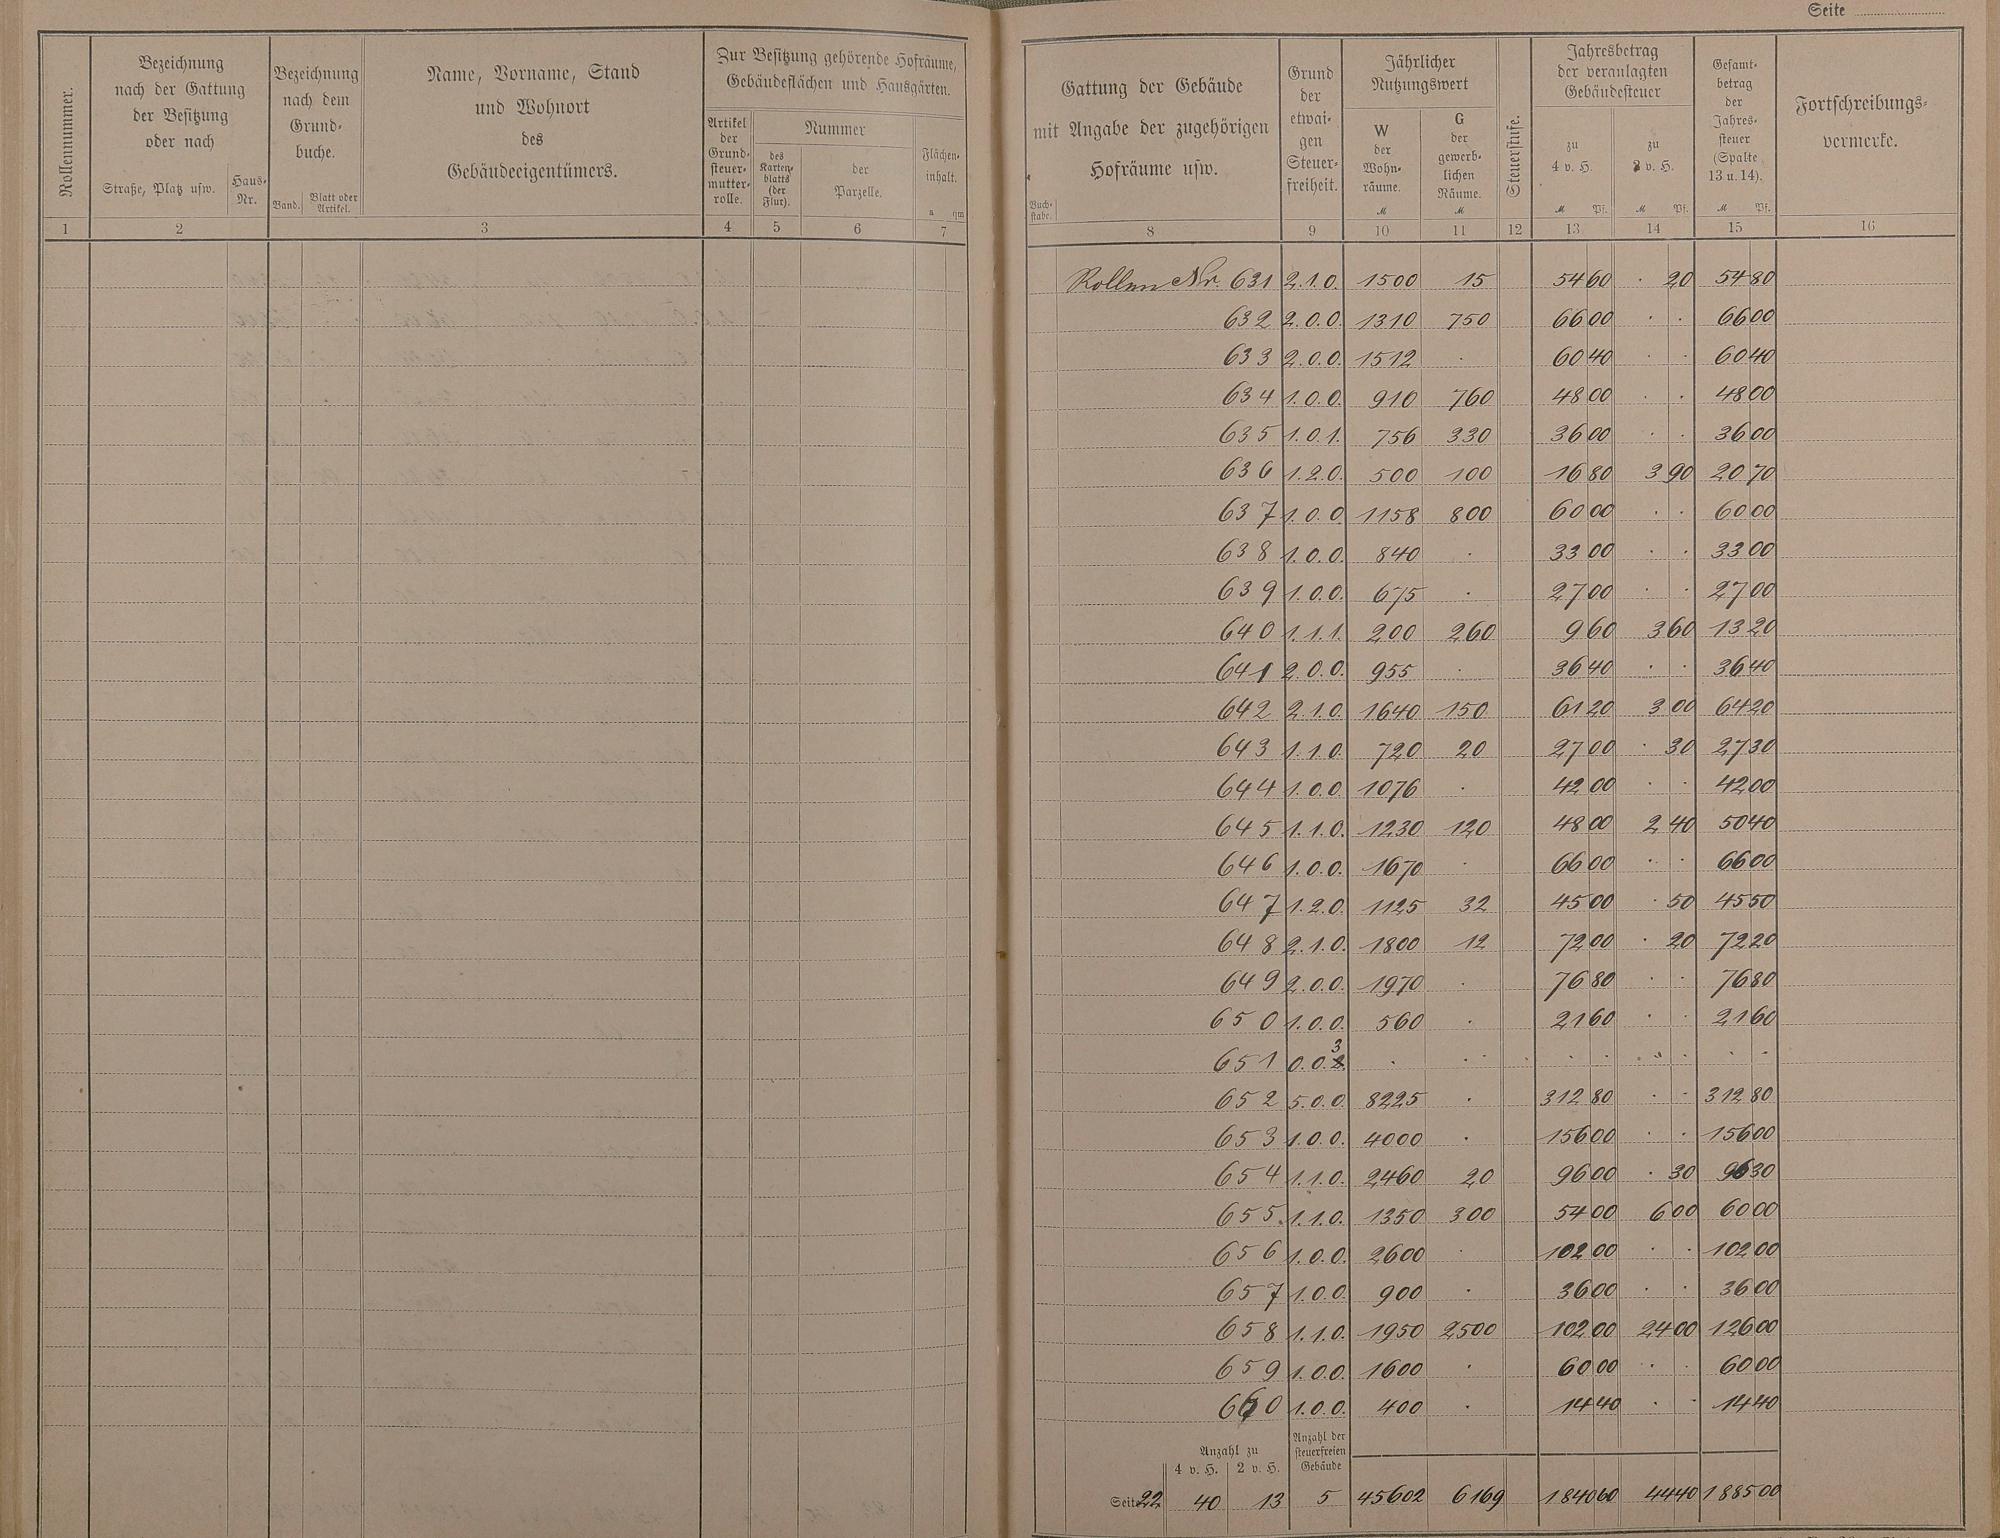 Seite
Rollennummer.
Bezeichnung
nach der Gattung
der Besitzung
oder nach
Straße, Platz usw.
Haus-
Nr.
Bezeichnung
nach dem
Grund-
buche.
Band.
Blatt oder
Artikel.
Name, Vorname, Stand
und Wohnort
des
Gebäudeeigentümers.
Zur Besitzung gehörende Hofräume,
Gebäudeflächen und Hausgärten.
Artikel
der
Grund-
steuer-
mutter-
rolle.
Nummer
des
Karten-
blatts
(der
Flur).
der
Parzelle.
Flächen-
inhalt.
a qm
1 2 3 4 5 6 7
Gattung der Gebäude
mit Angabe der zugehörigen
Hofräume usw.
Buch-
stabe.
Grund
der
etwai-
gen
Steuer-
freiheit.
Jährlicher
Nutzungswert
W
der
Wohn-
räume.
M
G
der
gewerb-
lichen
Räume.
M
Steuerstufe.
Jahresbetrag
der veranlagten
Gebäudesteuer
zu
4 v. H.
M Pf.
zu
2 v. H.
M Pf.
Gesamt-
betrag
der
Jahres-
steuer
(Spalte
13 u. 14).
M Pf.
Fortschreibungs-
vermerke.
8 9 10 11 12 13 14 15 16
Rollen Nr. 631 2.1.0. 1500 15 54 60 · 20 54 80
632 2.0.0. 1310 750 66 00 · · 66 00
633 2.0.0. 1512 · 60 40 · · 60 40
634 1.0.0. 910 760 48 00 · · 48 00
635 1.0.1. 756 330 36 00 · · 36 00
636 1.2.0. 500 100 16 80 3 90 20 70
637 1.0.0. 1158 800 60 00 · · 60 00
638 1.0.0. 840 · 33 00 · · 33 00
639 1.0.0. 675 · 27 00 · · 27 00
640 1.1.1. 200 260 9 60 3 60 13 20
641 2.0.0. 955 · 36 40 · · 36 40
642 2.1.0. 1640 150 61 20 3 00 64 20
643 1.1.0. 720 20 27 00 · 30 27 30
644 1.0.0. 1076 · 42 00 · · 42 00
645 1.1.0. 1230 120 48 00 2 40 50 40
646 1.0.0. 1670 · 66 00 · · 66 00
647 1.2.0. 1125 32 45 00 · 50 45 50
648 2.1.0. 1800 12 72 00 · 20 72 20
649 2.0.0. 1970 · 76 80 · · 76 80
650 1.0.0. 560 · 21 60 · · 21 60
651 0.0.3 · · · · · · · ·
652 5.0.0. 8225 · 312 80 · · 312 80
653 1.0.0. 4000 · 156 00 · · 156 00
654 1.1.0. 2460 20 96 00 · 30 96 30
655 1.1.0. 1350 300 54 00 6 00 60 00
656 1.0.0. 2600 · 102 00 · · 102 00
657 1.0.0. 900 · 36 00 · · 36 00
658 1.1.0. 1950 2500 102 00 24 00 126 00
659 1.0.0. 1600 · 60 00 · · 60 00
660 1.0.0. 400 · 14 40 · · 14 40
Anzahl zu
4 v. H. 2 v. H.
Anzahl der
steuerfreien
Gebäude
Seite 22 40 13 5 45602 6169 1840 60 44 40 1885 00